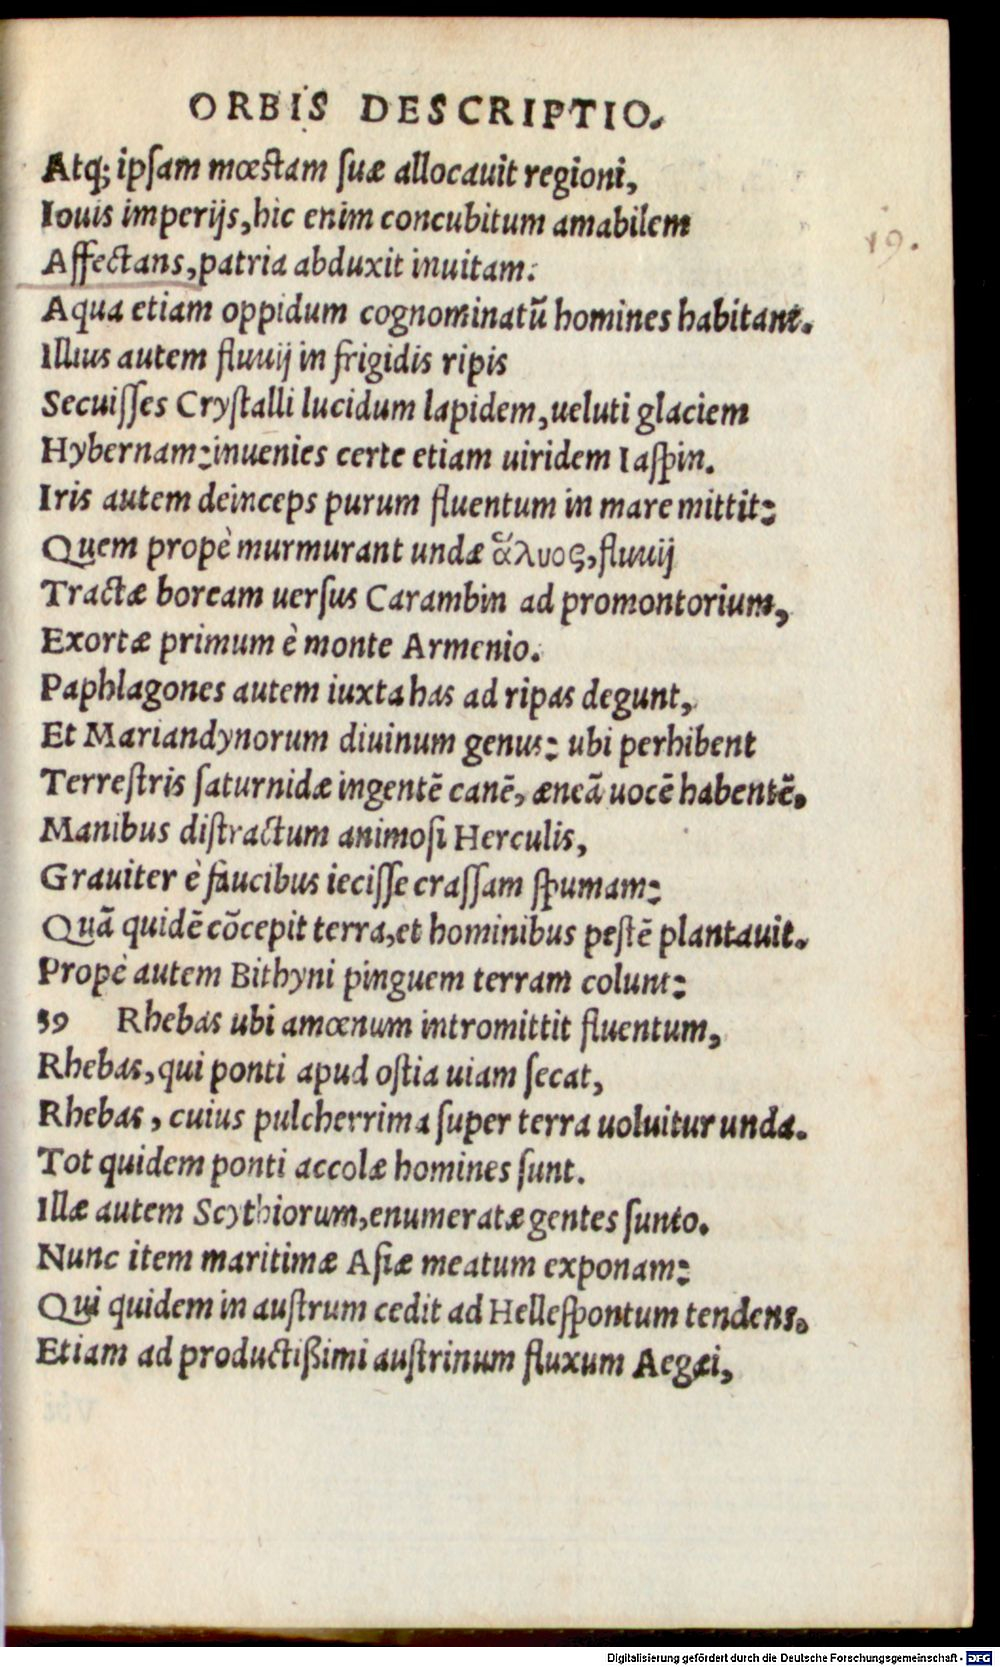 ORBIS DESCRIPTIO.
Atq; ipsam mœstam suæ allocauit regioni,
Iouis imperijs, hic enim concubitum amabilem
19.
Affectans, patria abduxit inuitam.
Aqua etiam oppidum cognominatũ homines habitant.
Illius autem fluuij in frigidis ripis
Secuisses Crystalli lucidum lapidem, ueluti glaciem
Hybernam: inuenies certe etiam uiridem Iaspin.
Iris autem deinceps purum fluentum in mare mittit:
Quem propè murmurant undæ ἅλυος, fluuij
Tractæ boream uersus Carambin ad promontorium,
Exortæ primum è monte Armenio.
Paphlagones autem iuxta has ad ripas degunt,
Et Mariandynorum diuinum genus: ubi perhibent
Terrestris saturnidæ ingentẽ canẽ, æneã uocẽ habentẽ.
Manibus distractum animosi Herculis,
Grauiter è faucibus iecisse crassam spumam:
Quã quidẽ cõcepit terra, et hominibus pestẽ plantauit.
Propè autem Bithyni pinguem terram colunt:
59 Rhebas ubi amœnum intromittit fluentum,
Rhebas, qui ponti apud ostia uiam secat,
Rhebas, cuius pulcherrima super terra uoluitur unda.
Tot quidem ponti accolæ homines sunt.
Illæ autem Scythiorum, enumeratæ gentes sunto.
Nunc item maritimæ Asiæ meatum exponam:
Qui quidem in austrum cedit ad Hellespontum tendens.
Etiam ad productißimi austrinum fluxum Aegæi,
Digitalisierung gefördert durch die Deutsche Forschungsgemeinschaft - DFG